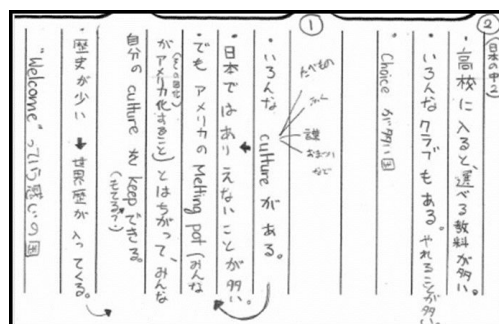 ②
・高校に入ると、選べる教科が多い。
・いろんなクラブもある。やれることが多い。
・Choice が多い国
①
・いろんな culture がある。
たべもの
ふく
おまつり
など
・日本ではありえないことが多い。
・でもアメリカのMelting pot (みんな
がアメリカ化すること)とはちがって、みんな
自分の culture を keep できる。
・歴史が少い → 世界歴が入ってくる。
"Welcome" っていう感じの国